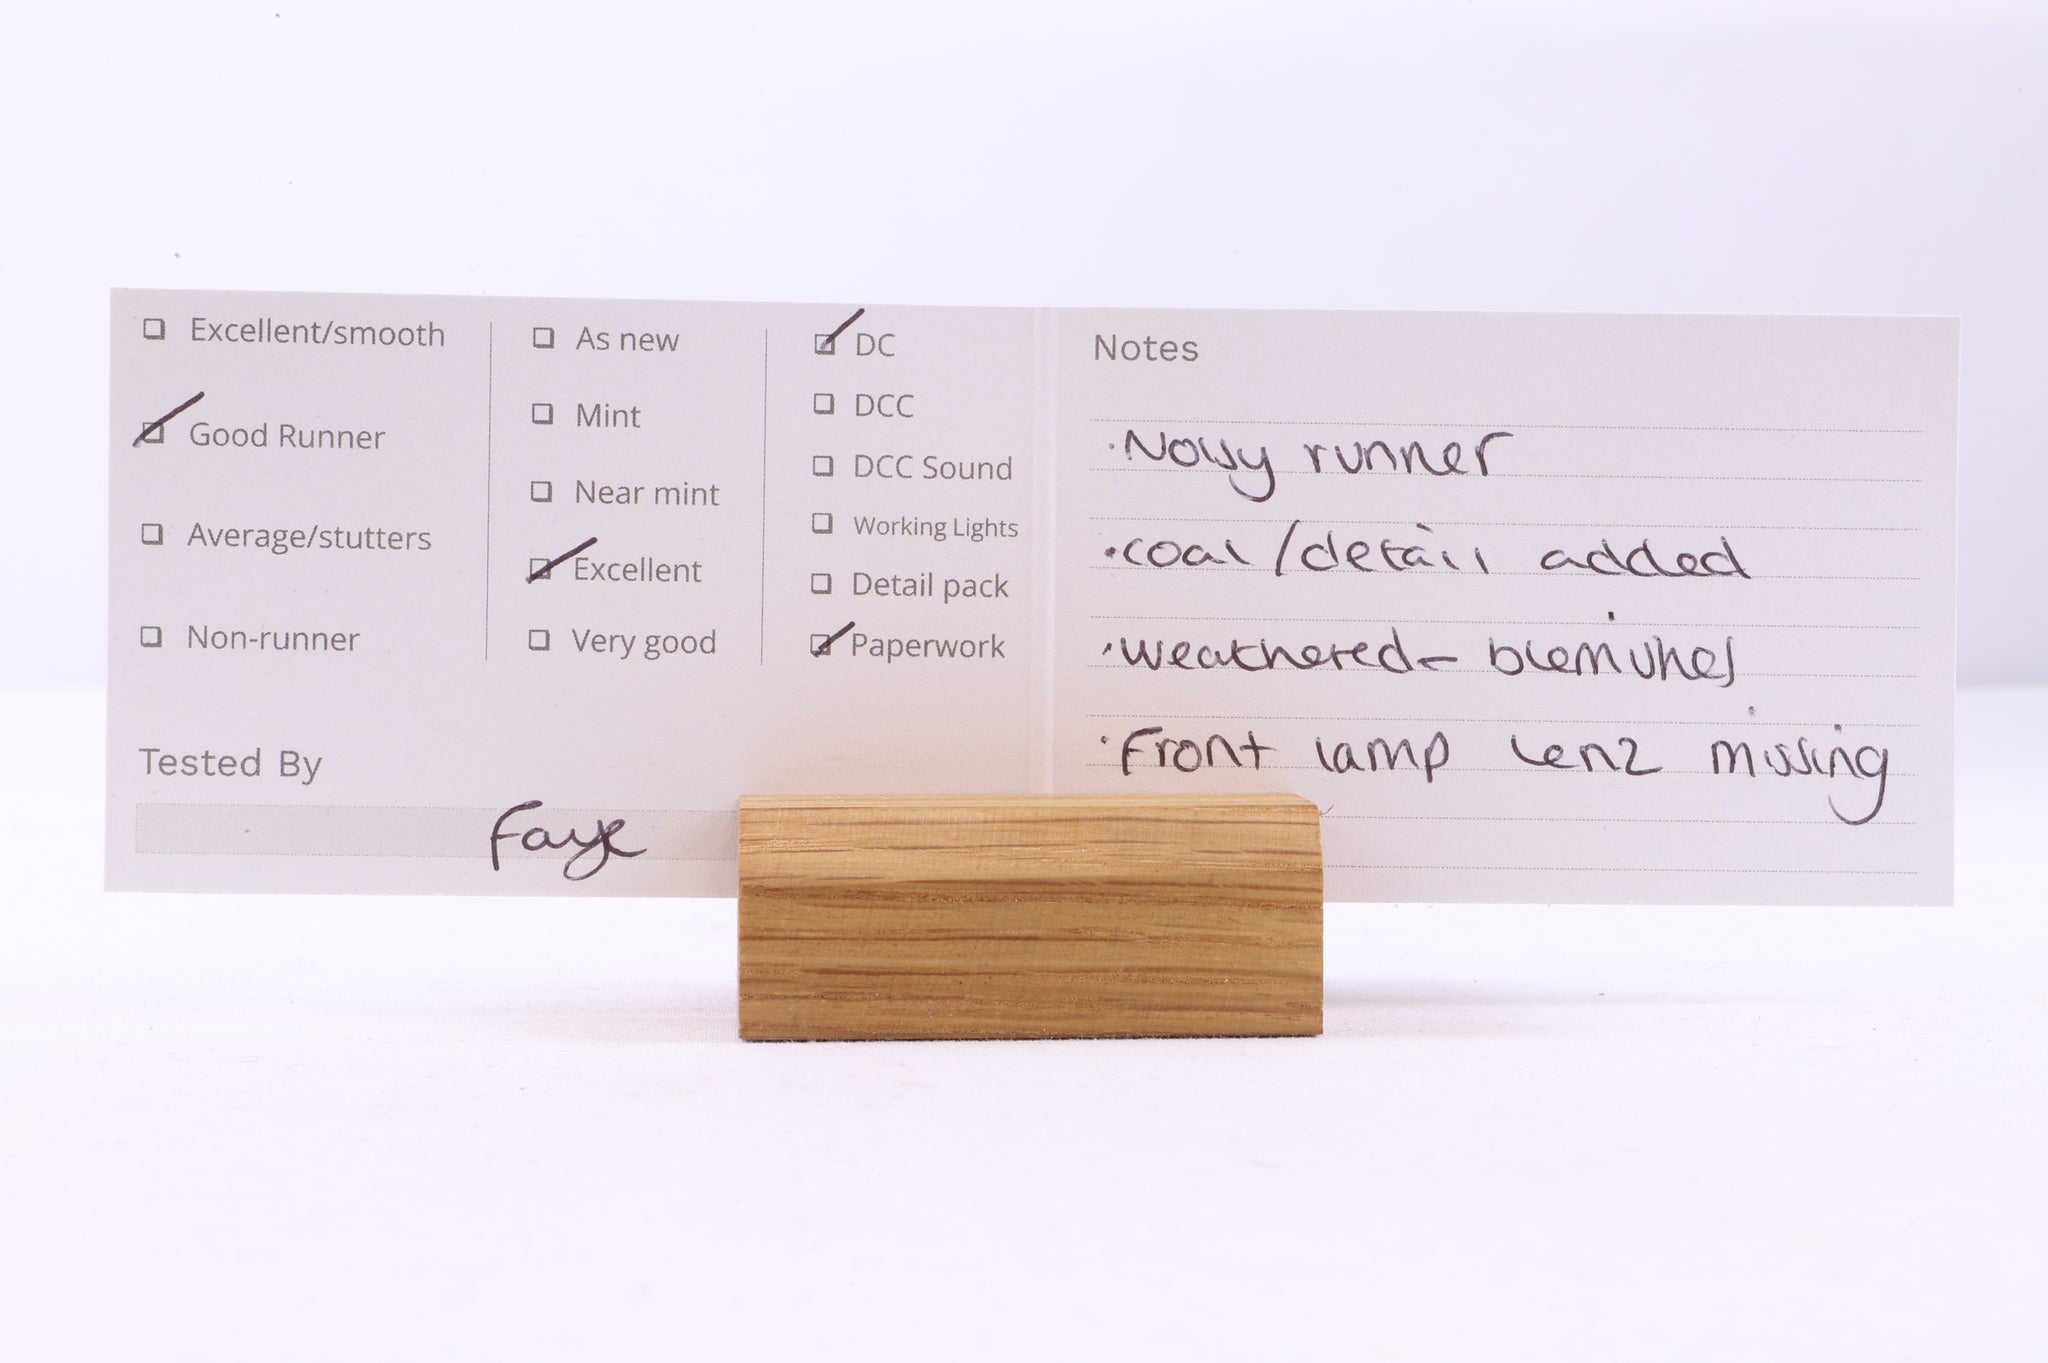 Excellent/smooth
Good Runner
Average/stutters
Non-runner
As new
Mint
Near mint
Excellent
Very good
DC
DCC
DCC Sound
Working Lights
Detail pack
Paperwork
Tested By
Faye
Notes
·Noisy runner
·coal/detail added
·weathered - blemishes
·Front lamp lenz missing